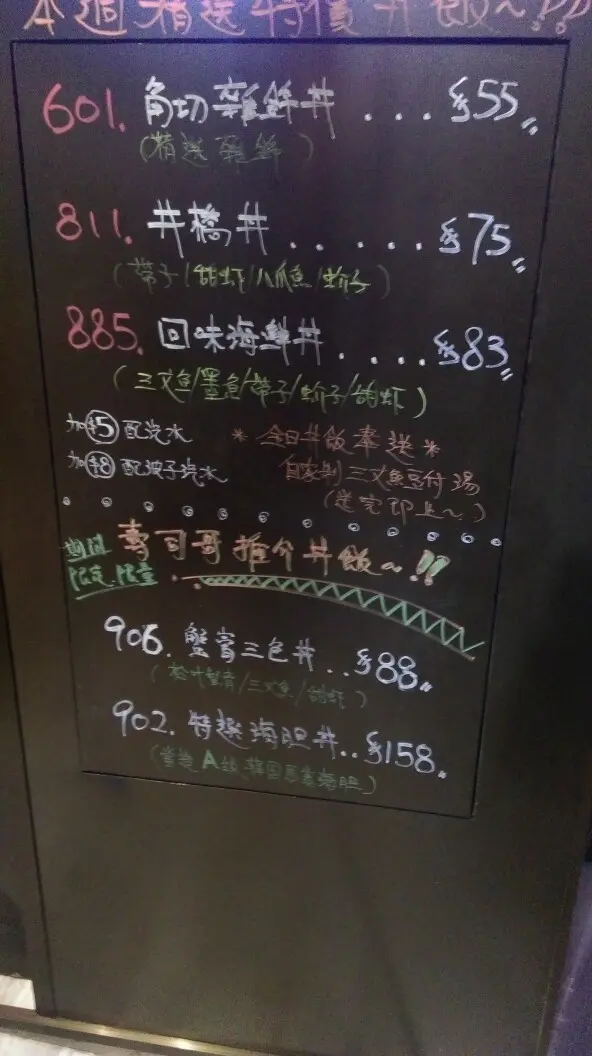 本週精選特價丼飯~!!
601. 角切雜鮮丼 ... $55
(精選雜鮮)
811. 丼橋丼 ...... $75
(帶子/甜虾/八爪魚/蚧子)
885. 回味海鮮丼 .... $83
(三文魚/墨魚/帶子/蚧子/甜虾)
加$5配汽水
加$8配波子汽水
*全日丼飯奉送*
自家制三文魚豆付湯
(送完即止~)
期间限定.限量
壽司哥推介丼飯~!!
906. 蟹膏三色丼..$88
(松叶蟹膏/三文魚/甜虾)
902. 特選海胆丼..$158
A級
海胆)